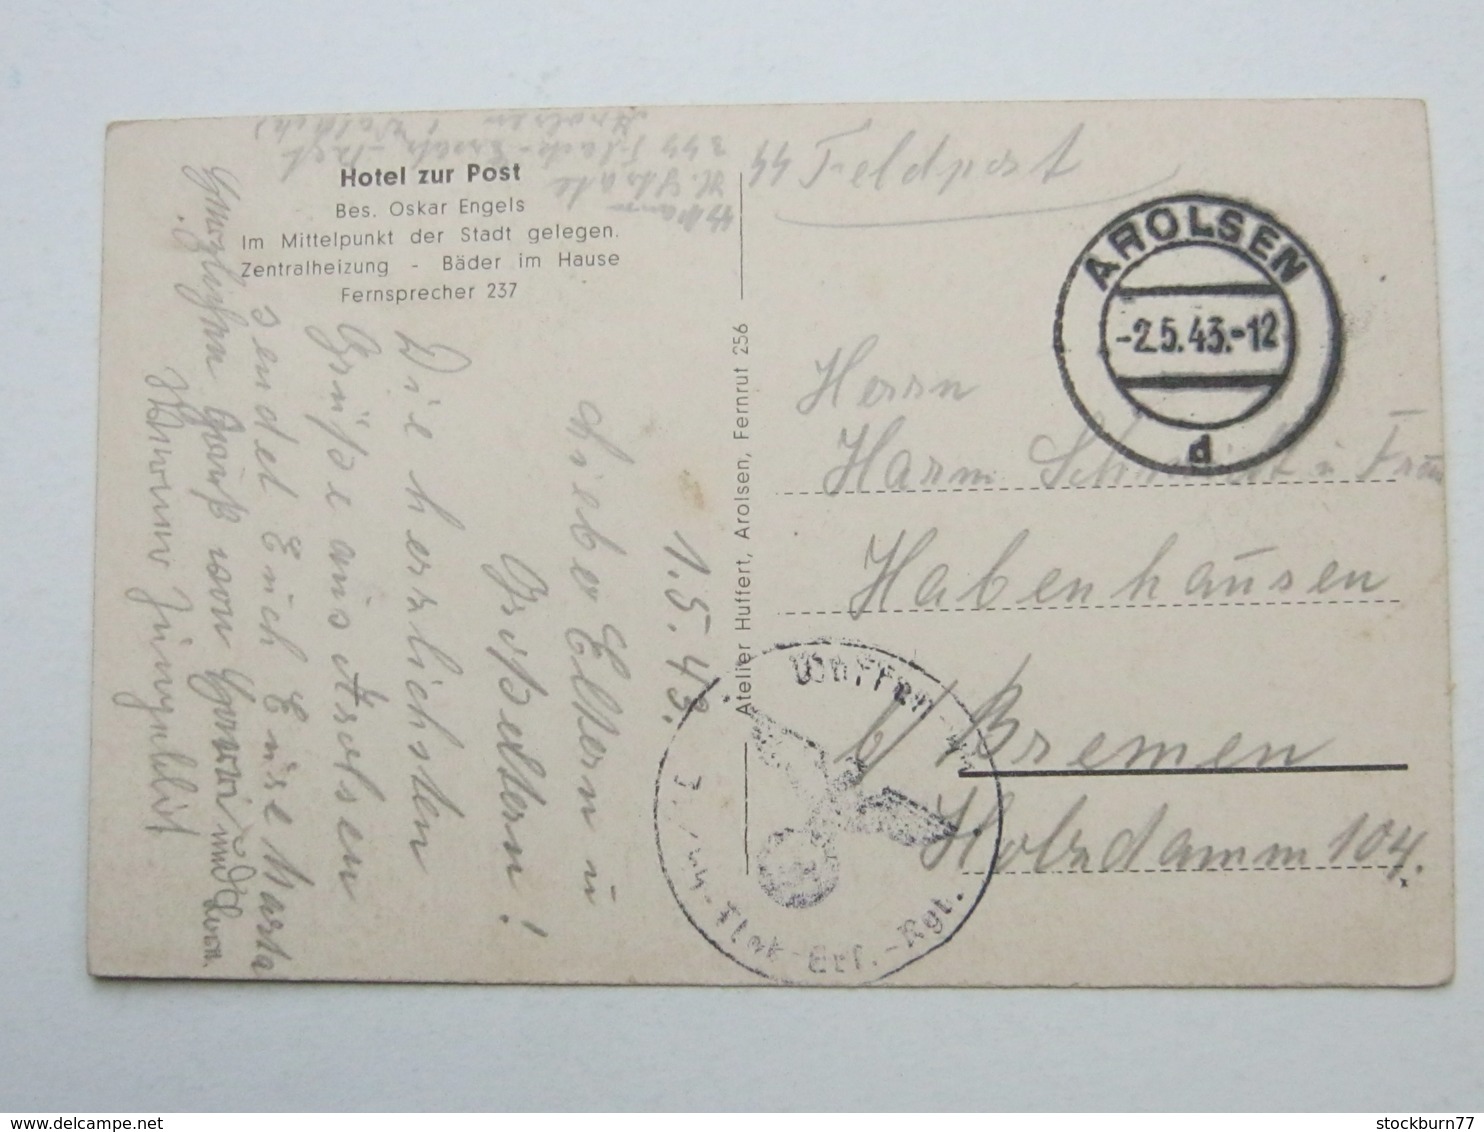 Hotel zur Post
Bes. Oskar Engels
Im Mittelpunkt der Stadt gelegen.
Zentralheizung - Bäder im Hause
Fernsprecher 237
Atelier Huffert, Arolsen, Fernruf 256
SS Feldpost
AROLSEN
-2.5.43.-12
d
Herrn
Harm Schmidt u Frau
Habenhausen
b/ Bremen
Holzdamm 104.
Waffen-
3. Flak-Ers.-Rgt.
3 SS Flack-Ersatz-Regt
Arolsen (Waldeck)
1.5.43.
Lieber Eltern u
Großeltern!
Die herzlichsten
Grüße aus Arolsen
sendet Euch Eure Marta
von
und
stockburn77